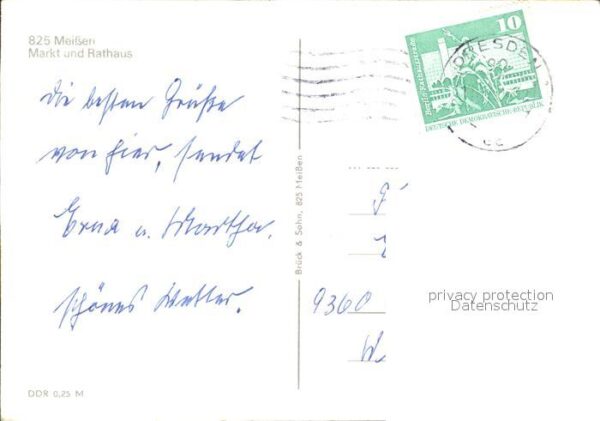 825 Meißen
Markt und Rathaus
die besten Grüße
von hier, sendet
Erna u. Martha.
schönes Wetter.
DDR 0,25 M
Brück & Sohn, 825 Meißen
10
Berlin-Rathausstraße
DEUTSCHE DEMOKRATISCHE REPUBLIK
DRESDEN
9360
W
privacy protection
Datenschutz